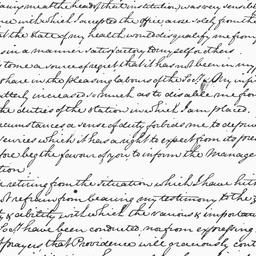 at the head of that institution, was very sensibl
with which I accepted the office, arose solely from the
at the state of my health would disqualify me from
s in a manner satisfactory to myself or others.
to me a source of regret that it has not been in my
share in the pleasing labours of the Socy. My infir
increased so much as to disable me from
the duties of the station in which I am placed.
rcumstances a sense of duty forbids me to depriv
services which it has a right to expect from its pres
fore beg the favour of you to inform the Manage
tion
retiring from the situation which I have hith
not refrain from bearing my testimony to the z
& ability with which the various & important
Socy have been conducted, nor from expressing
prayers, that Providence will graciously cont